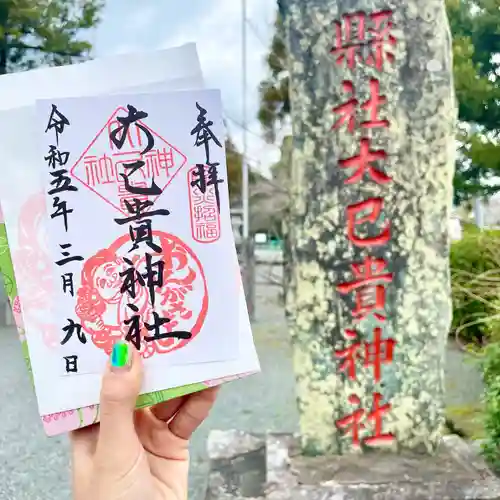 奉拝
大己貴神社
令和五年三月九日
招福
縣社大己貴神社